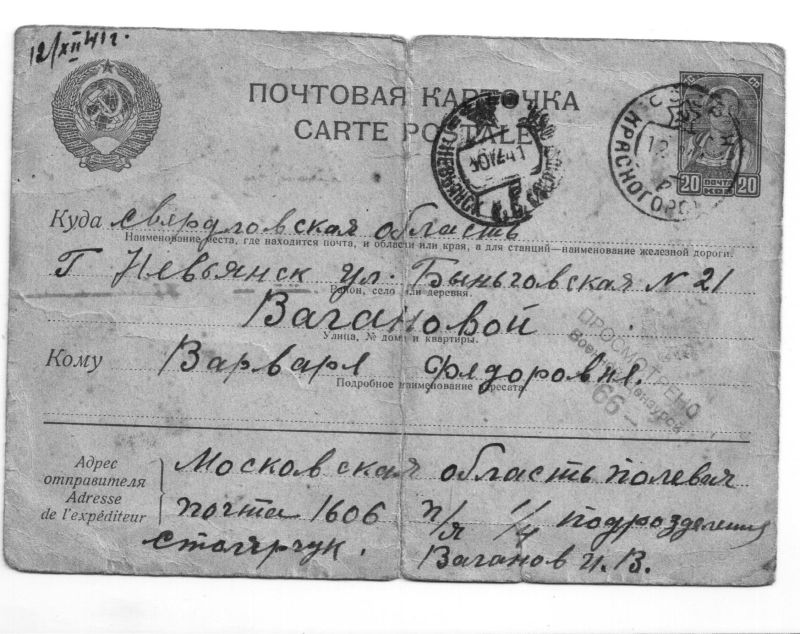 12/XII 41 г.
ПОЧТОВАЯ КАРТОЧКА
CARTE POSTALE
КРАСНОГОРСК
20 ПОЧТА КОП. 20
Куда свярдловская область
Наименование места, где находится почта, и области или края, а для станций—наименование железной дороги.
г Невьянск ул. Быньговская N 21
Район, село или деревня.
Вагановой
Улица, № дома и квартиры.
Кому Варваре Фядоровне.
Подробное наименование адресата.
ПРОСМОТРЕНО
Военной Цензурой
66
Адрес отправителя
Adresse de l'expéditeur
Московская область полевая
почта 1606 п/я 1/4 подразделения
Ваганов И. В.